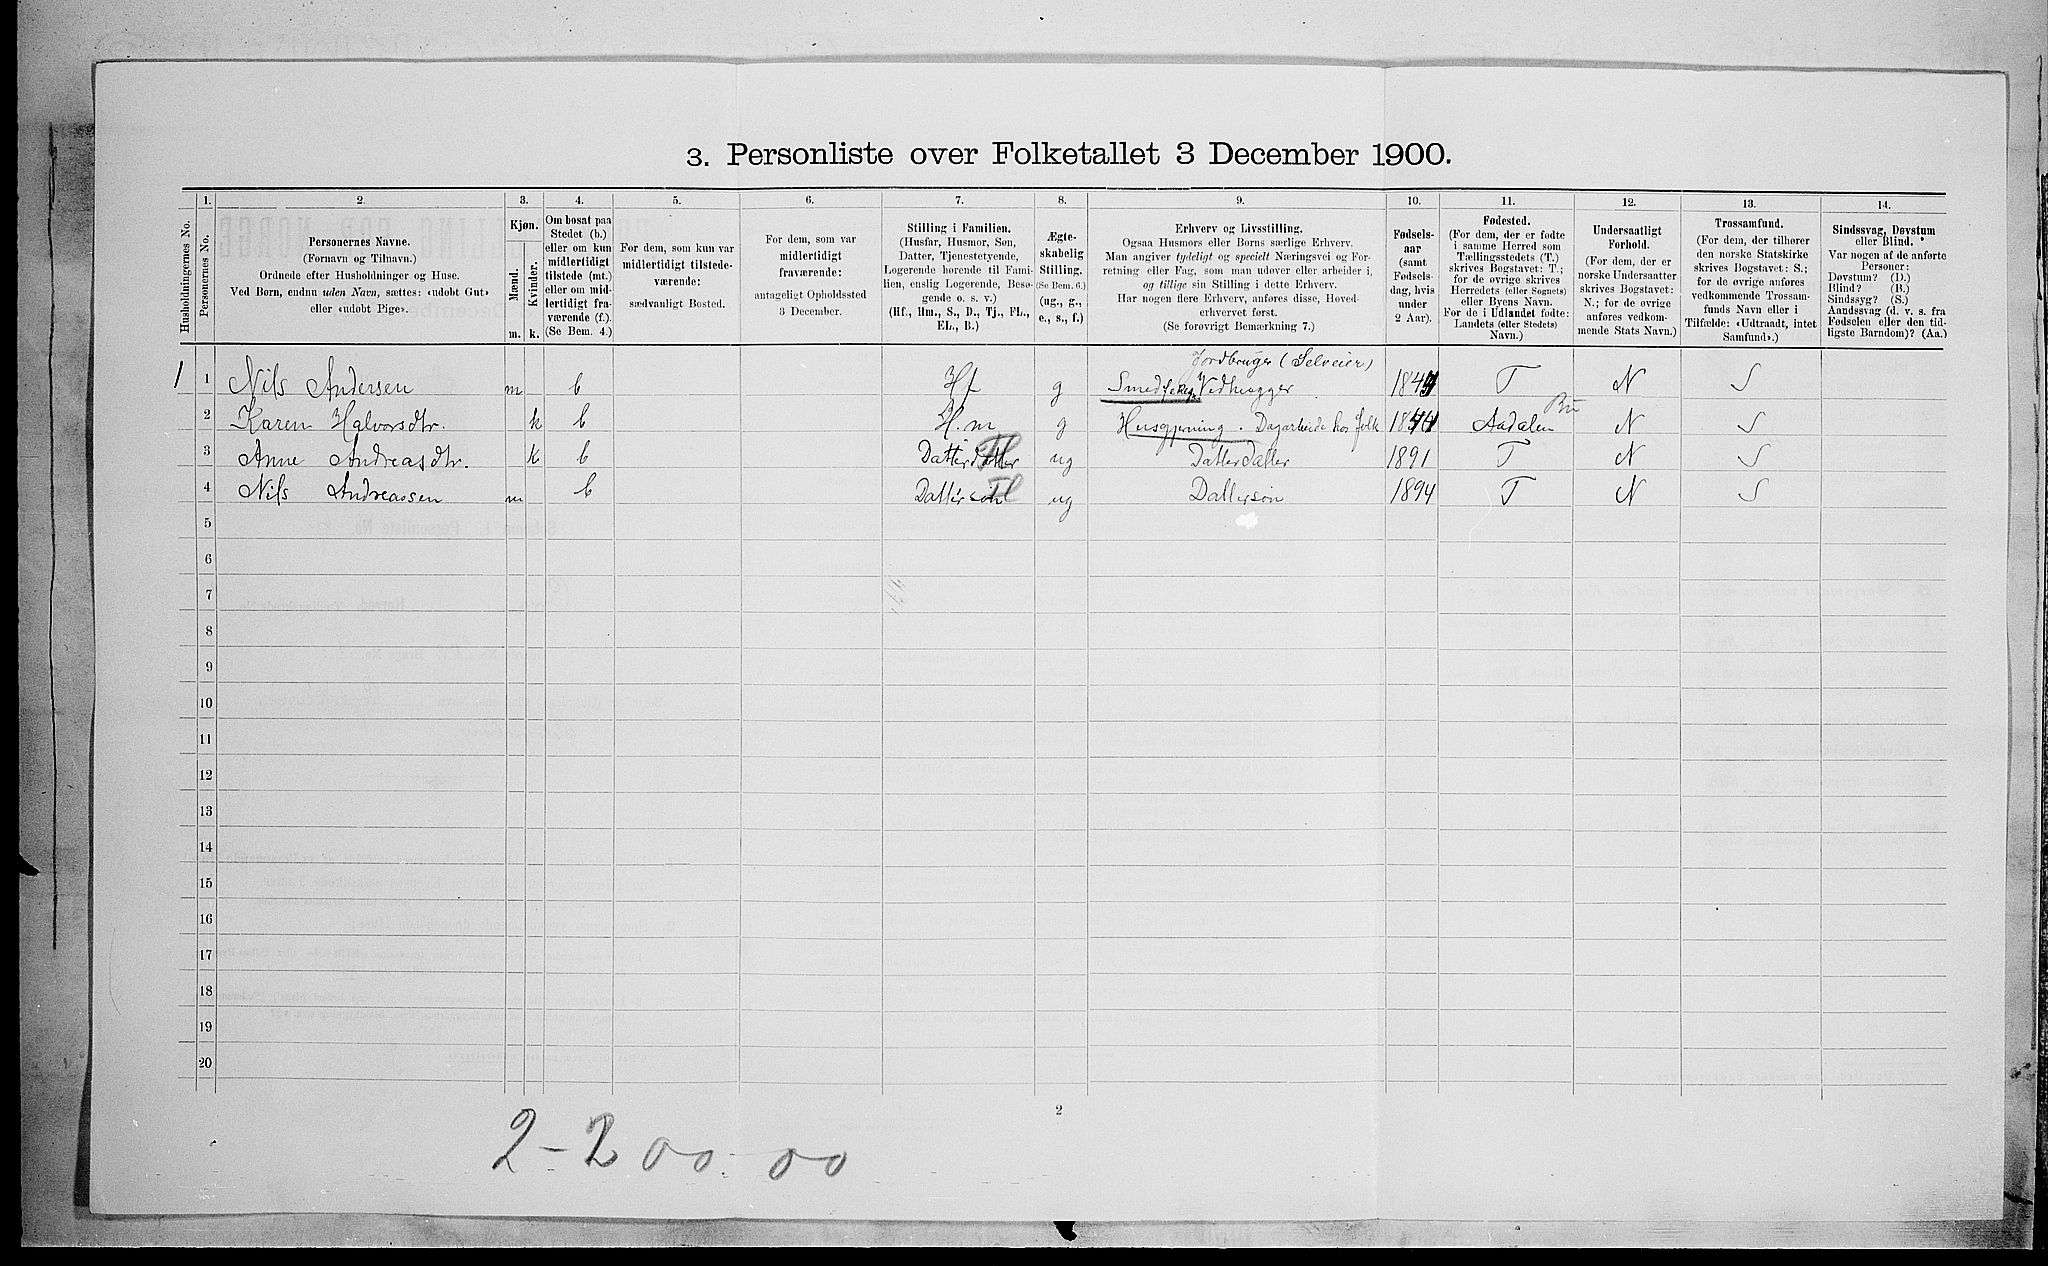 3. Personliste over Folketallet 3 December 1900.
1. 2. 3. 4. 5. 6. 7. 8. 9. 10. 11. 12. 13. 14.
Husholdningernes No.
Personernes No.
Personernes Navne.
(Fornavn og Tilnavn.)
Ordnede efter Husholdninger og Huse.
Ved Børn, endnu uden Navn, sættes: «udøbt Gut»
eller «udøbt Pige».
Kjøn.
Mænd.
Kvinder.
m. k.
Om bosat paa
Stedet (b.)
eller om kun
midlertidigt
tilstede (mt.)
eller om mid-
lertidigt fra-
værende (f.).
(Se Bem. 4.)
For dem, som kun var
midlertidigt tilstede-
værende:
sædvanligt Bosted.
For dem, som var
midlertidigt
fraværende:
antageligt Opholdssted
3 December.
Stilling i Familien.
(Husfar, Husmor, Søn,
Datter, Tjenestetyende,
Logerende hørende til Fami-
lien, enslig Logerende, Besø-
gende o. s. v.)
(Hf., Hm., S., D., Tj., FL.,
EL., B.)
Ægte-
skabelig
Stilling.
(Se Bem. 6.)
(ug., g.,
e., s., f.)
Erhverv og Livsstilling.
Ogsaa Husmors eller Børns særlige Erhverv.
Man angiver tydeligt og specielt Næringsvei og For-
retning eller Fag, som man udøver eller arbeider i,
og tillige sin Stilling i dette Erhverv.
Har nogen flere Erhverv, anføres disse, Hoved-
erhvervet først.
(Se forøvrigt Bemærkning 7.)
Fødsels-
aar
(samt
Fødsels-
dag, hvis
under
2 Aar).
Fødested.
(For dem, der er fødte
i samme Herred som
Tællingsstedets (T.)
skrives Bogstavet: T.;
for de øvrige skrives
Herredets (eller Sognets)
eller Byens Navn.
For de i Udlandet fødte:
Landets (eller Stedets)
Navn.)
Undersaatligt
Forhold.
(For dem, der er
norske Undersaatter
skrives Bogstavet:
N.; for de øvrige
anføres vedkom-
mende Stats Navn.)
Trossamfund.
(For dem, der tilhører
den norske Statskirke
skrives Bogstavet: S.;
for de øvrige anføres
vedkommende Trossam-
funds Navn eller i
Tilfælde: «Udtraadt, intet
Samfund».)
Sindssvag, Døvstum
eller Blind.
Var nogen af de anførte
Personer:
Døvstum? (D.)
Blind? (B.)
Sindssyg? (S.)
Aandssvag (d. v. s. fra
Fødselen eller den tid-
ligste Barndom)? (Aa.)
Jordbruger (Selveier)
1 1 Nils Andersen m b Hf g Smed Vedhugger T N S
2 Karen Halvorsdtr. k b H.m g Husgjerning. Dagarbeide hos folk Aadalen Bu N S
3 Anne Andreasdtr. k b Datterdatter Fl ug Datterdatter 1891 T N S
4 Nils Andreassen m b Dattersøn Fl ug Dattersøn 1894 T N S
5
6
7
8
9
10
11
12
13
14
15
16
17
18
19
20
2
2-200.00